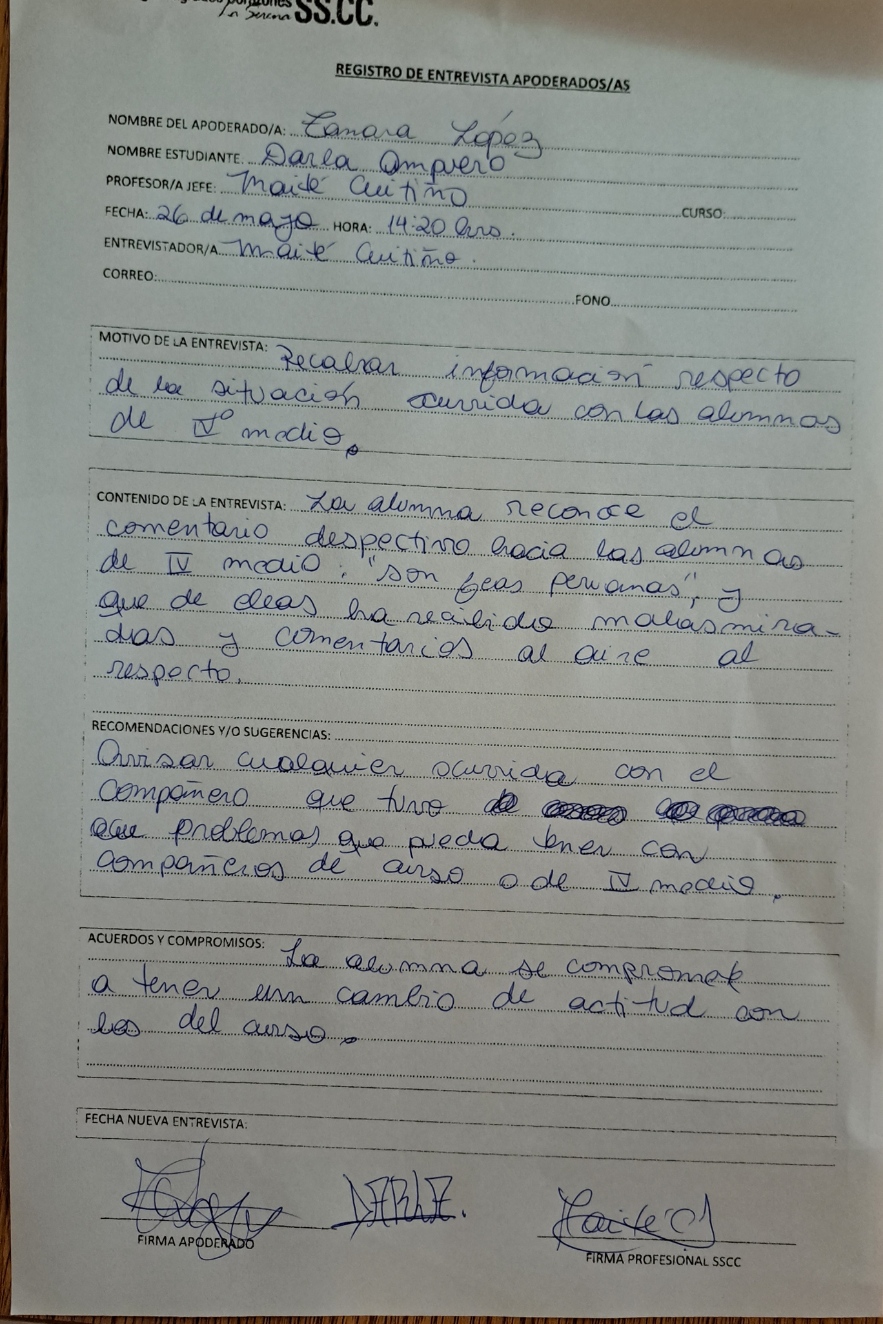 SS.CC.
La Serena
REGISTRO DE ENTREVISTA APODERADOS/AS
NOMBRE DEL APODERADO/A: Tamara López
NOMBRE ESTUDIANTE: Darla Ampuero
PROFESOR/A JEFE: Maité Cuitiño CURSO:
FECHA: 26 de mayo HORA: 14:20 hrs.
ENTREVISTADOR/A Maité Cuitiño.
CORREO: FONO
MOTIVO DE LA ENTREVISTA: Recabar información respecto
de la situación ocurrida con las alumnas
de IVº medio.
CONTENIDO DE LA ENTREVISTA: La alumna reconoce el
comentario despectivo hacia las alumnas
de IV medio: "son feas peruanas", y
que de ellas ha recibido malas mira-
das y comentarios al aire al
respecto.
RECOMENDACIONES Y/O SUGERENCIAS:
Avisar cualquier ocurrida con el
compañero que tuvo
problemas que pueda tener con
compañeros de curso o de IV medio.
ACUERDOS Y COMPROMISOS: La alumna se compromete
a tener un cambio de actitud con
los del curso.
FECHA NUEVA ENTREVISTA:
Maité C
FIRMA APODERADO
FIRMA PROFESIONAL SSCC